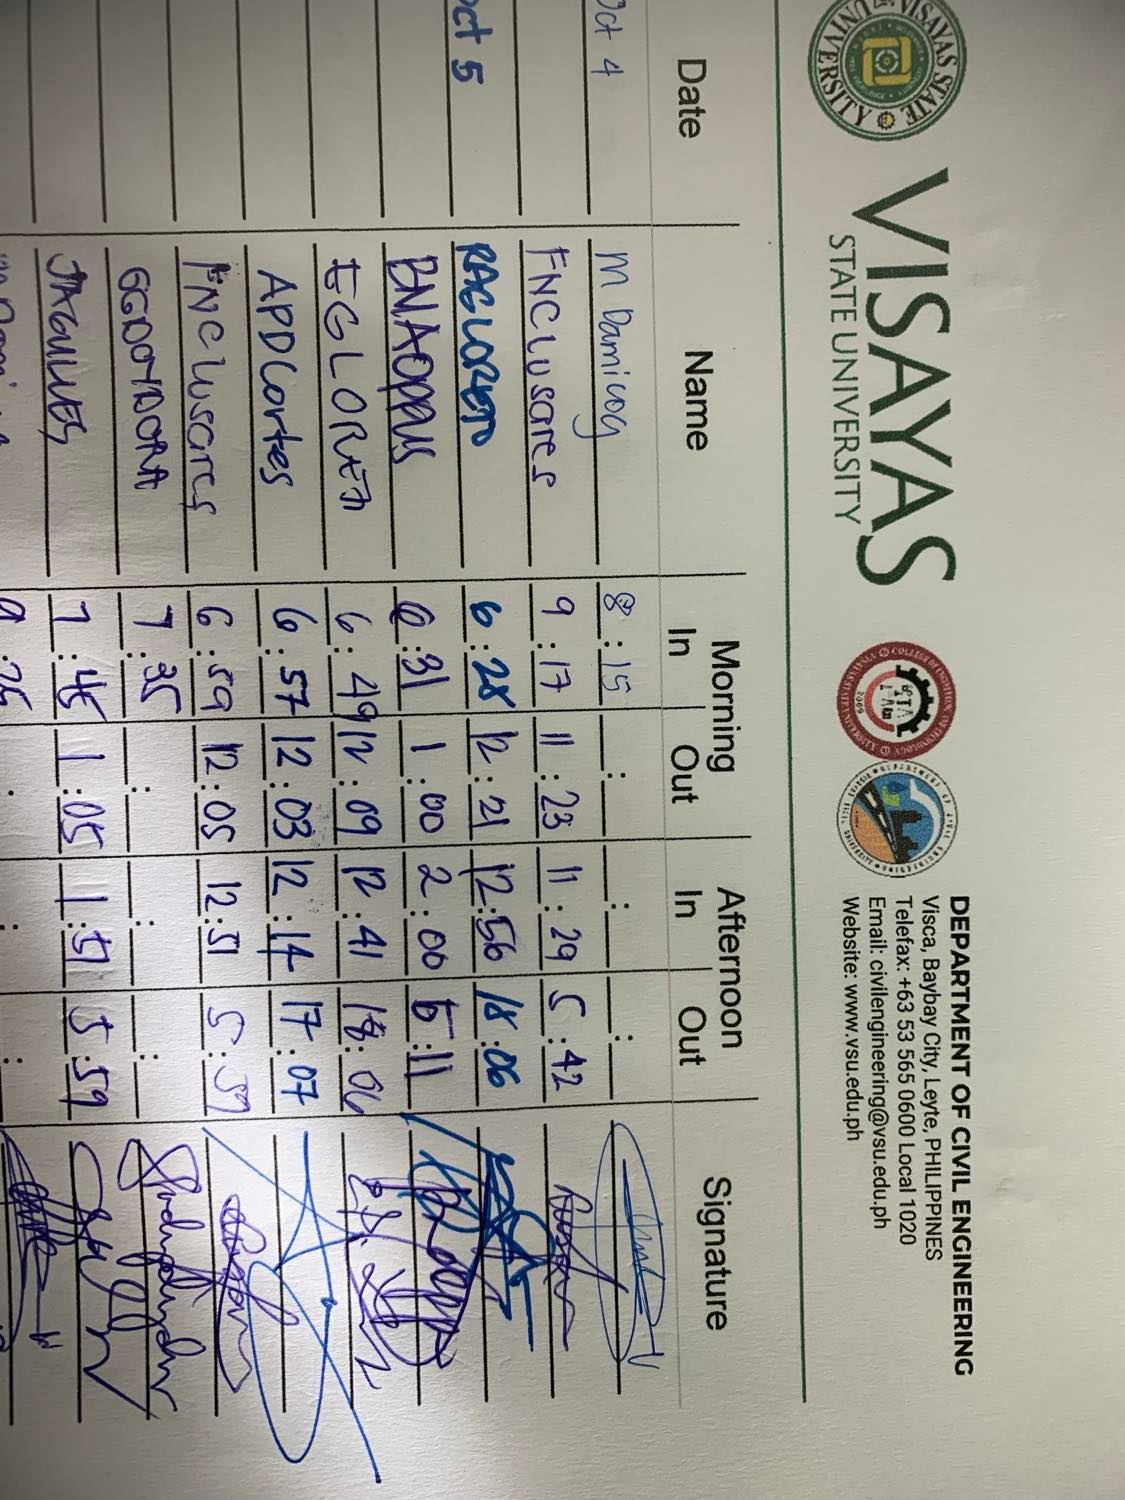 VISAYAS
STATE UNIVERSITY
VISAYAS STATE UNIVERSITY
2009
DEPARTMENT OF CIVIL ENGINEERING
Visca, Baybay City, Leyte, PHILIPPINES
Telefax: +63 53 565 0600 Local 1020
Email: civilengineering@vsu.edu.ph
Website: www.vsu.edu.ph
Date Name Morning Afternoon Signature
In Out In Out
Oct 4 M Damicog 8:15 : : :
FNCLusares 9:17 11:23 11:29 5:42
Oct 5 RAGLORETO 6:28 12:21 12:56 18:06
BNAOppus 6:31 1:00 2:00 5:11
6:49 12:09 12:41 18:06
APDCortes 6:57 12:03 12:14 17:07
FNCLusares 6:59 12:05 12:51 5:59
7:35 : : :
7:45 1:05 1:51 5:59